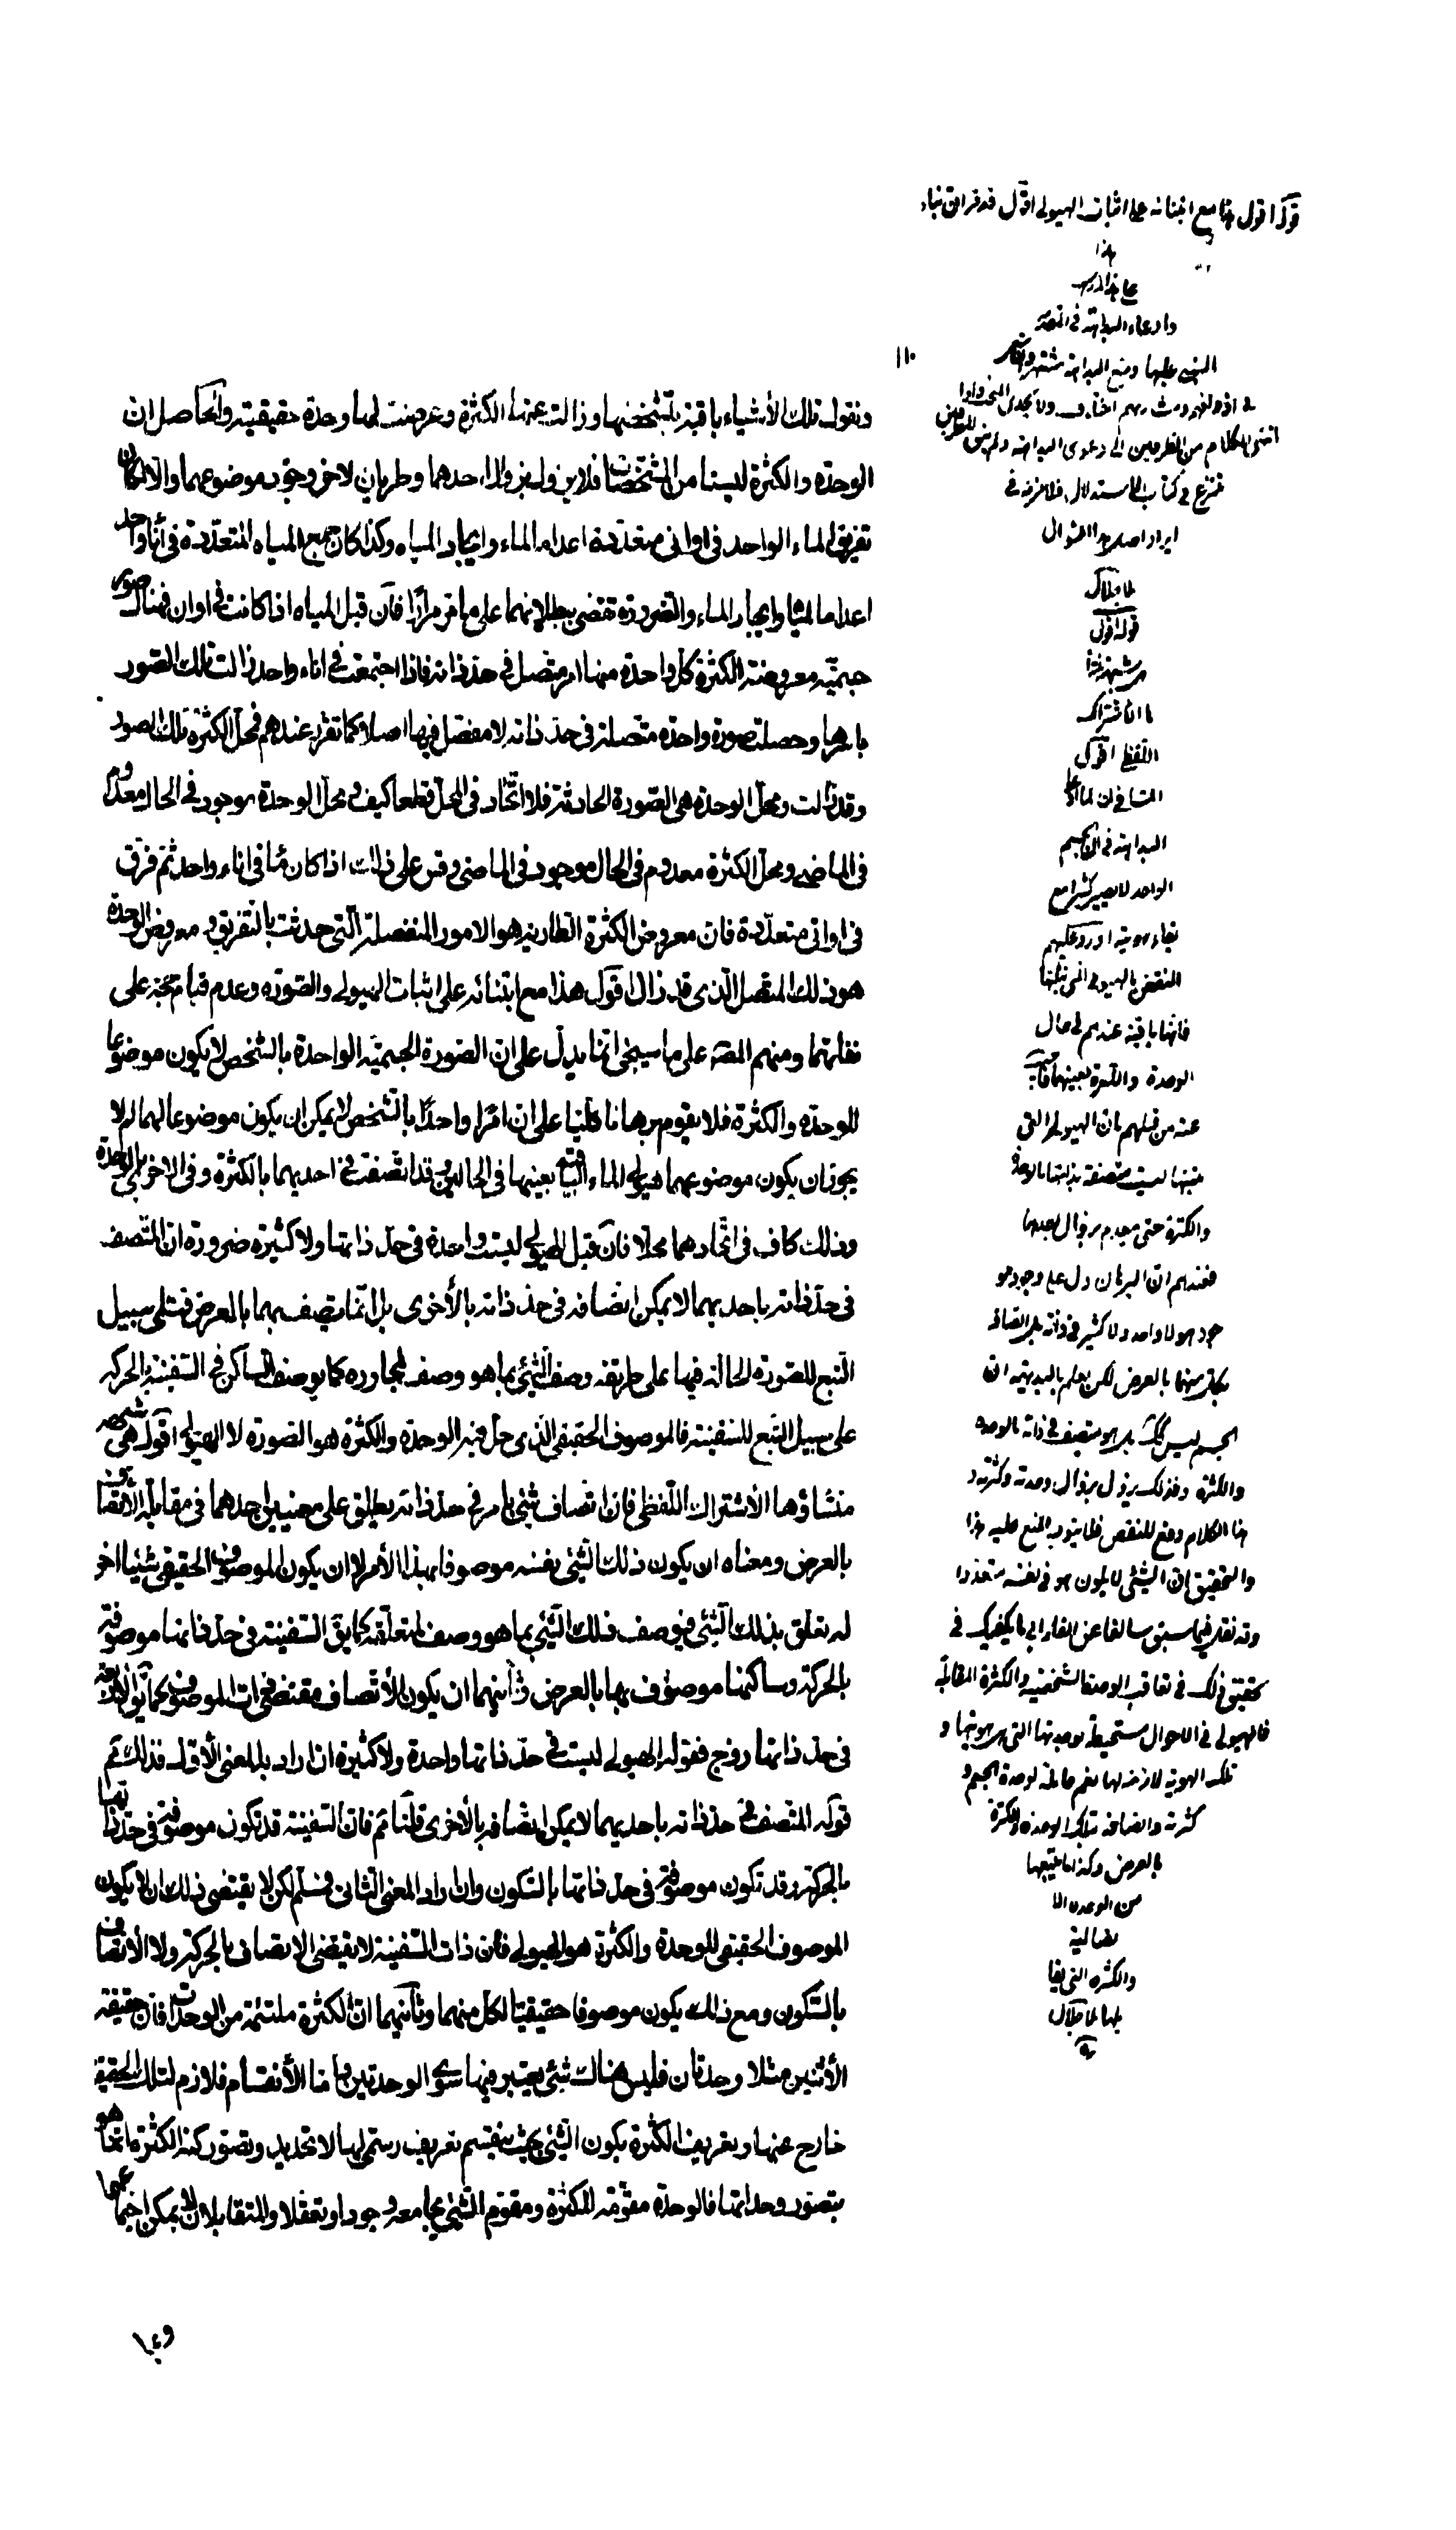 ١١٠
ونقول تلك الأشياء باقية بتشخصها وزالت عنها الكثرة وعرضت لها وحدة حقيقية والحاصل ان
الوحدة والكثرة ليستا من المشخصات فلا يلزم لزوال احدهما وطريان لاخر وجود موضوعهما والا لكان
تفريق الماء الواحد فى اوانى متعددة اعدام الماء وايجاد المياه وكذا كان جمع المياه المتعددة فى أناء واحد
اعداما للمياه وايجاد الماء والضرورة تقضى ببطلانهما على ما مر مرارًا فان قيل المياه اذا كانت فى اوان فهناك صور
جسمية معروضة الكثرة كل واحدة منها امر متصل فى حد ذاته فاذا اجتمعت فى اناء واحد زالت تلك الصور
باسرها وحصلت صورة واحدة متصلة فى حد ذاته لا مفصل فيها اصلا كما تقرر عندهم فمحل الكثرة تلك الصور
وقد زالت ومحل الوحدة هى الصورة الحادثة فلا اتحاد فى المحل قطعا كيف ومحل الوحدة موجود فى الحال معدوم
فى الماضى ومحل الكثرة معدوم فى الحال موجود فى الماضى وقس على ذلك اذا كان ماء فى اناء واحد ثم فرق
فى اوانى متعددة فان معروض الكثرة الطارية هو الامور المنفصلة التى حدثت بالتفريق ومعروض الوحدة
هو ذلك المتصل الذى قد زال اقول هذا مع ابتنائه على اثبات الهيولى والصورة وعدم قيام حجة على
نفيهما ومنهم المصه على ما سيجئ انما يدل على ان الصورة الجسمية الواحدة بالشخص لا يكون موضوعا
للوحدة والكثرة فلا يقوم برهانا كليا على ان امرا واحدًا بالشخص لا يمكن ان يكون موضوعا لهما لم لا
يجوز ان يكون موضوعهما هيولى الماء الباقية بعينها فى الحالين وقد اتصفت فى احديهما بالكثرة وفى الاخرى بالوحدة
وذلك كاف فى اتحادهما محلا فان قيل الهيولى ليست واحدة فى حد ذاتها ولا كثيرة ضرورة ان المتصف
فى حد ذاته باحديهما لا يمكن اتصافه فى حد ذاته بالأخرى بل انما يتصف بهما بالعرض فهى على سبيل
التبع للصورة الحالة فيها على طريقة وصف الشئ بما هو وصف لمجاوره كما يوصف الساكن فى السفينة بالحركة
على سبيل التبع للسفينة فالموصوف الحقيقى الذى حل فيه الوحدة والكثرة هو الصورة لا الهيولى اقول هى شبهة
منشاؤها الأشتراك اللفظى فان اتصاف شئ بامر فى حد ذاته يطلق على معنيين احدهما فى مقابلة الأتصاف
بالعرض ومعناه ان يكون ذلك الشئ بنفسه موصوفا بهذا الأمر لا ان يكون الموصوف الحقيقى شيئا اخر
له تعلق بذلك الشئ فيوصف ذلك الشئ بما هو وصف لمتعلقه كما يق السفينة فى حد ذاتها موصوفة
بالحركة وساكنها موصوف بها بالعرض وثانيهما ان يكون الأتصاف مقتضى ذات الموصوف كما يق الاربعة
فى حد ذاتها زوج فقوله الهيولى ليست فى حد ذاتها واحدة ولا كثيرة ان اراد بالمعنى الأول فذلك مم
قوله المتصف فى حد ذاته باحديهما لا يمكن اتصافه بالأخرى قلنا مم فان السفينة قد تكون موصوفة فى حد ذاتها
بالحركة وقد تكون موصوفة فى حد ذاتها بالسكون وان اراد المعنى الثانى فمسلم لكن لا يقتضى ذلك ان لا يكون
الموصوف الحقيقى للوحدة والكثرة هو الهيولى فان ذات السفينة لا يقتضى الاتصاف بالحركة ولا الأتصاف
بالسكون ومع ذلك يكون موصوفا حقيقيا لكل منهما وثانيهما ان الكثرة ملتئمة من الوحدات فان حقيقة
الأثنين مثلا وحدتان فليس هناك شئ يعتبر فيها سوى الوحدتين واما الأنقسام فلازم لتلك الحقيقة
خارج عنها وتعريف الكثرة بكون الشئ بحيث ينقسم تعريف رسمى لها لا تحديد وتصور كنه الكثرة انما هو
بتصور وحداتها فالوحدة مقومة للكثرة ومقوم الشئ يجامعه وجودا وتعقلا والمتقابلان لا يمكن اجتماعهما
قوله اقول هذا مع ابتنائه على اثبات الهيولى اقول قد قر ان بناء
هذا
وادعاء البداهة فى القضية
ايراد اصل هذا السؤال
قوله اقول
بالاشتراك
اللفظ اقول
البداهة فى ان الجسم
الواحد لا يصير كثيرا مع
بقاء هويته اورد عليهم
النقض بالهيولى التى يثبتها
فانها باقية عندهم فى حال
الوحدة والكثرة بعينها
عنه من قبلهم بان الهيولى التى
نثبتها ليست متصفة بذاتها بالوحدة
والكثرة حتى ينعدم بزوال احدهما
فعندهم ان البرهان دل على وجود
جوهر لا واحد ولا كثير فى ذاته
بكل منهما بالعرض لكن يعلم بالبديهة ان
الجسم ليس كك بل هو متصف فى ذاته بالوحدة
والكثرة وفذلك يزول بزوال وحدته وكثرته
هذا الكلام دفع للنقض فلا يتوجه المنع عليه هذا
والتحقيق ان الشئ لا يكون هو فى نفسه متعددا
وقد نقلنا فيما سبق سالفا عن الفارابى ما يكفيك فى
تحقيق ذلك فى تعاقب الوحدة الشخصية والكثرة المقابلة
فالهيولى فى الاحوال مستحفظة بوحدتها التى هى هويتها و
تلك الهوية لازمة لها نعم حاملة لوحدة الجسم و
كثرته واتصافه بتلك الوحدة والكثرة
بالعرض وكذا ما يتبعها
من الوحدة الا
تصالية
والكثرة التى يقا
بلها